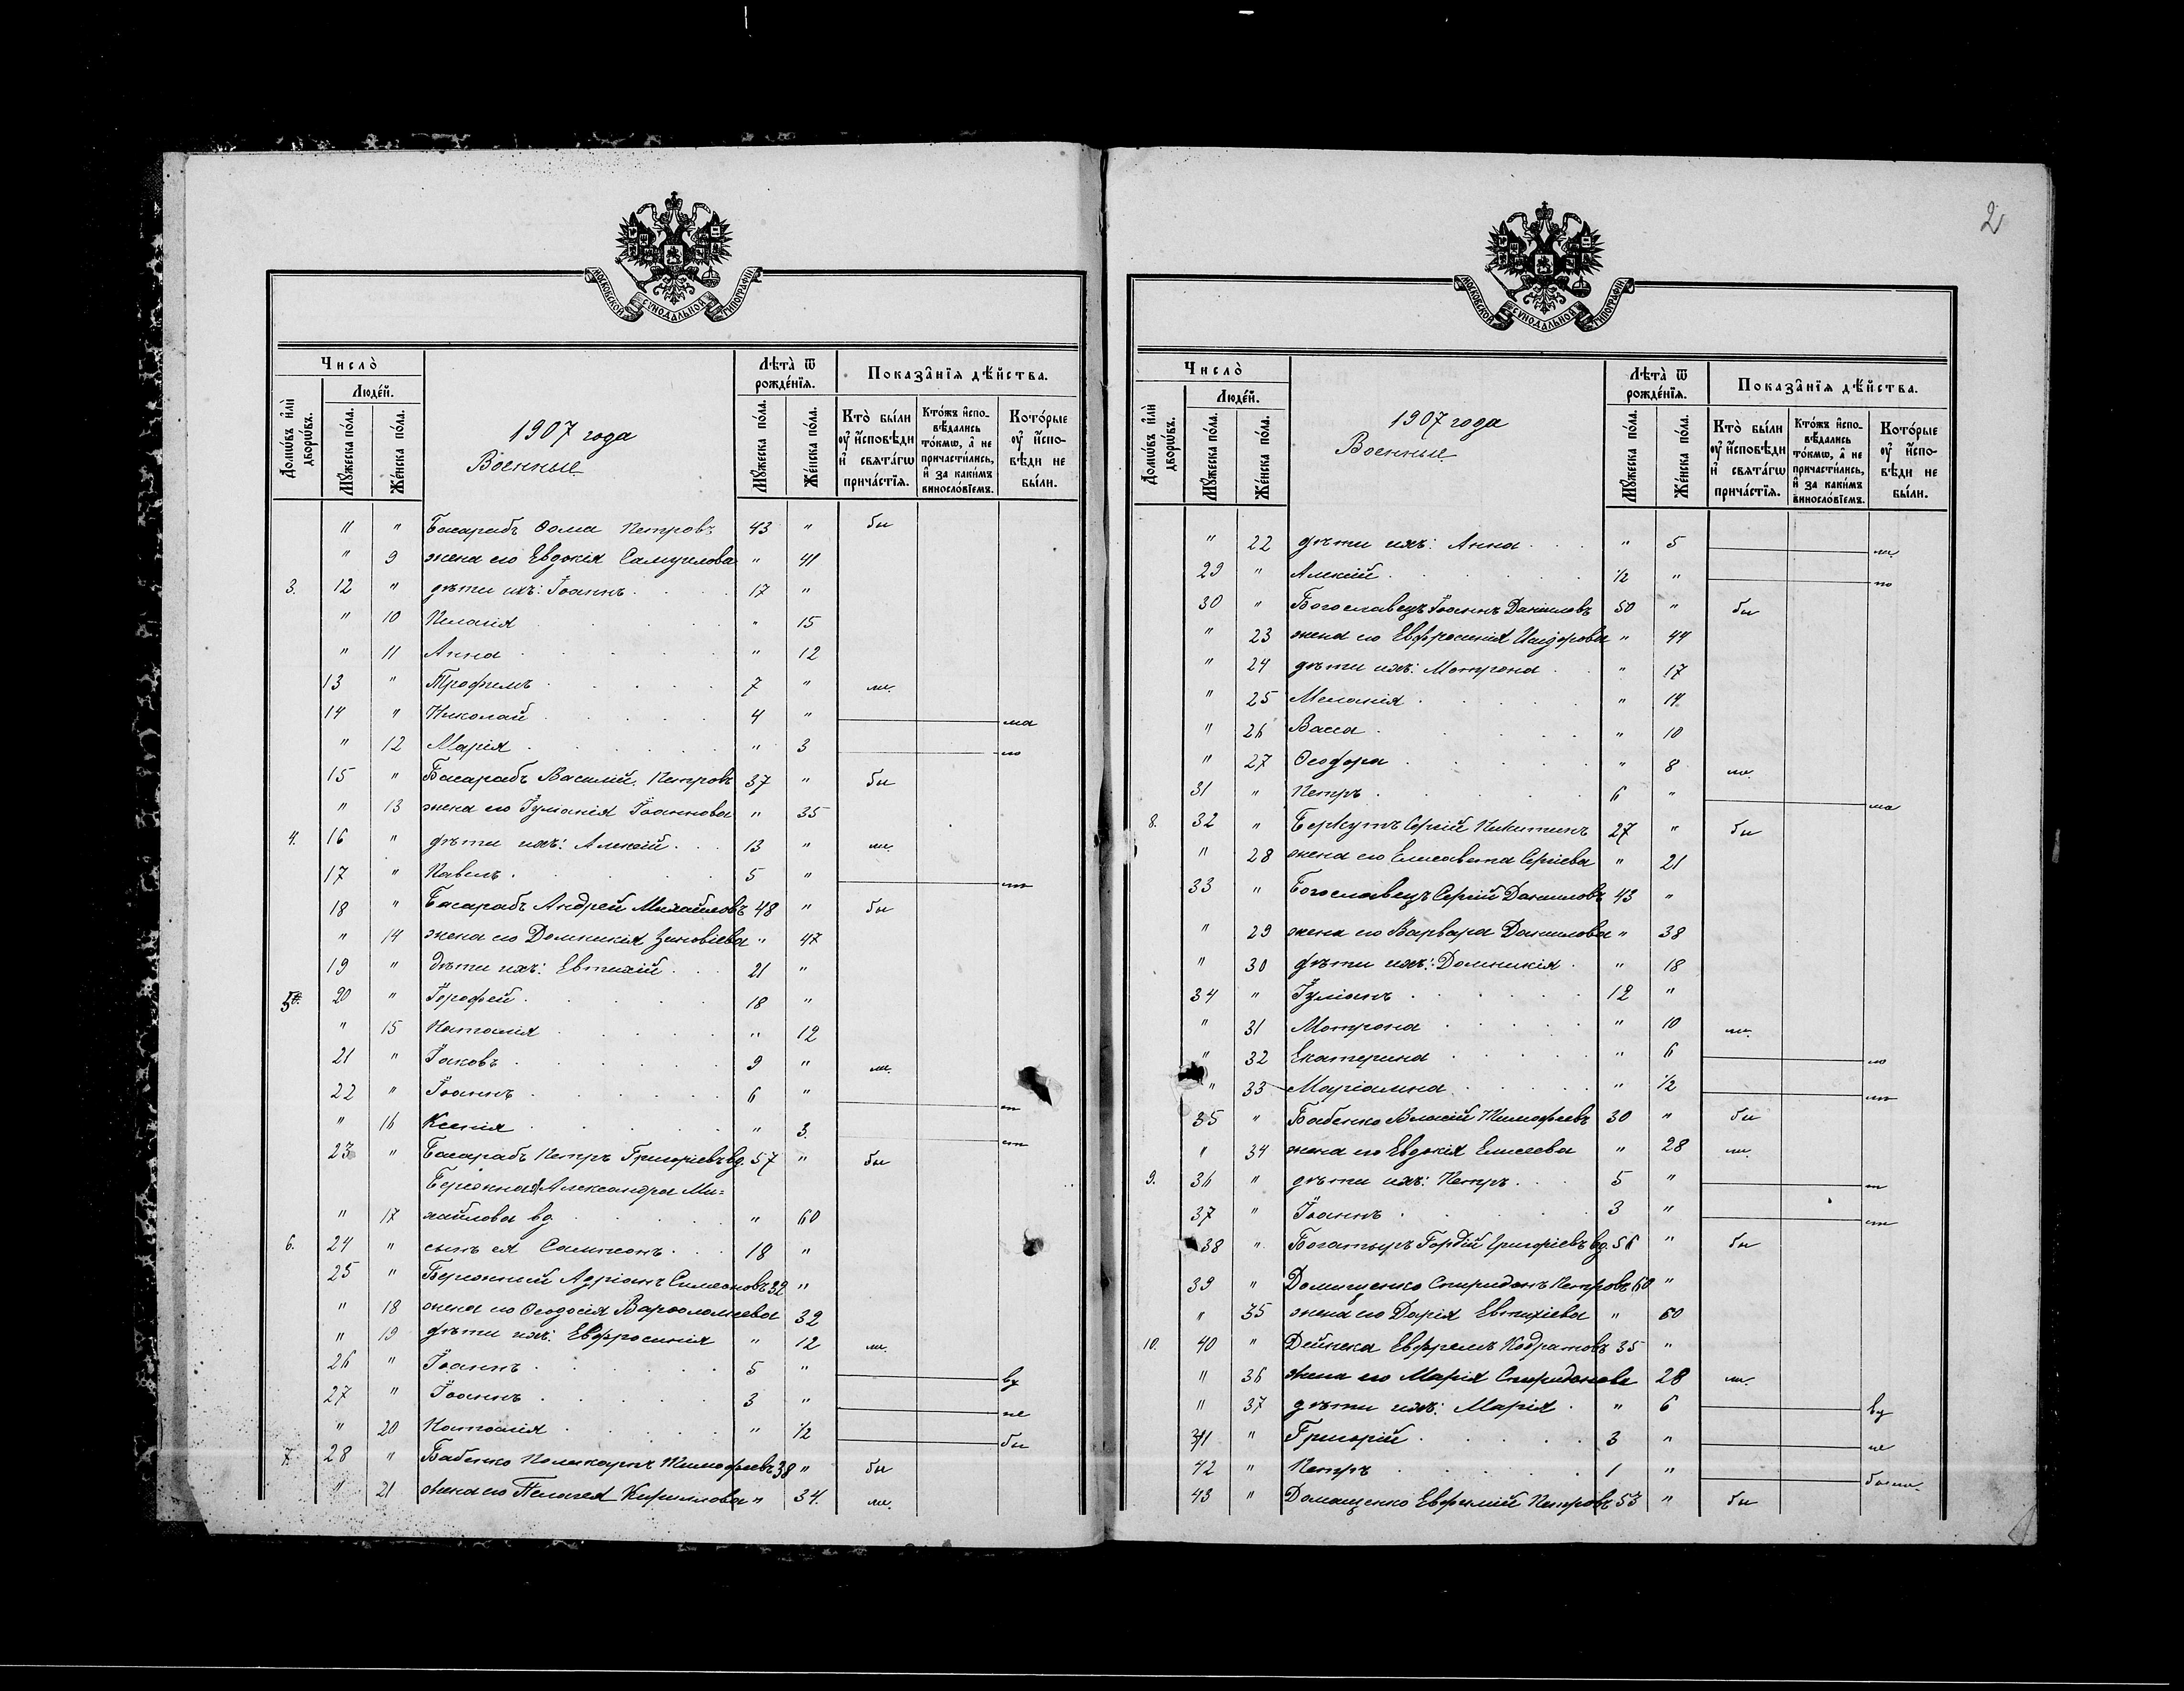 2
МОСКОВСКОЙ СѴНОДАЛЬНОЙ ТИПОГРАФІИ
Число̀
Лѣта̀ ѿ рожде́нїѧ.
Показа̑нїѧ дѣ́йства.
Людéй.
Домѡ́въ и҆лѝ дворѡ́въ.
Мꙋ́жеска по́ла.
Же́нска по́ла.
1907 года
Военные
Мꙋ́жеска по́ла.
Же́нска по́ла.
Кто̀ бы́ли ᲂу҆ и҆сповѣди и҆ свѧта́гѡ прича́стїѧ.
Кто́жъ и҆спо-вѣдались то́кмѡ, а҆ не причасти́лись, и҆ за каки́мъ винослóвїемъ.
Кото́рые ᲂу҆ и҆спо-вѣди не бы́ли.
11 " Басарабъ Ѳома Петровъ 43 " бы
" 9 жена его Евдокія Самуилова " 41
3. 12 " дѣти ихъ: Іоаннъ 17 "
" 10 Пелагія " 15
" 11 Анна " 12
13 " Трофимъ 7 " ли.
14 " Николай 4 " ма
" 12 Марія " 3 ло
15 " Басарабъ Василій Петровъ 37 " бы
" 13 жена его Іуліанія Іоаннова " 35
4. 16 " дѣти ихъ: Алексій 13 " ли.
17 " Павелъ 5 "
18 " Басарабъ Андрей Михайловъ 48 " бы
" 14 жена его Домникія Зиновіева " 47
19 " дѣти ихъ: Евтихій 21 "
5. 20 " Іерофей 18 "
" 15 Наталія " 12
21 " Іаковъ 9 " ли.
22 " Іоаннъ 6 "
" 16 Ксенія " 3.
23 " Басарабъ Петръ Григоріевъ вд. 57 " бы
Берiонная Александра Ми=
" 17 хайлова вд. " 60
6. 24 " сынъ ея Сампсонъ 18 "
25 " Адріанъ Симеоновъ 32 "
" 18 жена его Ѳеодосія Варѳоломеева 32
" 19 дѣти ихъ: Евфросинія " 12 ли.
26 " Іоаннъ 5 "
27 " Іоаннъ 3 " не
" 20 Наталія " 1/2 бы
7. 28 " Бабенко Поликарпъ Тимофеевъ 38 " бы
" 21 жена его Пелагея Кириллова " 34. ли.
МОСКОВСКОЙ СѴНОДАЛЬНОЙ ТИПОГРАФІИ
Число̀
Лѣта̀ ѿ рожде́нїѧ.
Показа̑нїѧ дѣ́йства.
Людéй.
Домѡ́въ и҆лѝ дворѡ́въ.
Мꙋ́жеска по́ла.
Же́нска по́ла.
1907 года
Военные
Мꙋ́жеска по́ла.
Же́нска по́ла.
Кто̀ бы́ли ᲂу҆ и҆сповѣди и҆ свѧта́гѡ прича́стїѧ.
Кто́жъ и҆спо-вѣдались то́кмѡ, а҆ не причасти́лись, и҆ за каки́мъ винослóвїемъ.
Кото́рые ᲂу҆ и҆спо-вѣди не бы́ли.
" 22 дѣти ихъ: Анна " 5
29 " Алексій 1/2 "
30 " Богославецъ Іоаннъ Даниловъ 50 " бы
" 23 жена его Евфросинія Исидорова " 44
" 24 дѣти ихъ: Матрона " 17
" 25 Меланія " 14
" 26 Васса " 10
" 27 Ѳеодора " 8 ли.
31 " Петръ 6 " ма
8. 32 " Беркутъ Сергій Никитинъ 27 " бы
" 28 жена его Елисавета Сергіева " 21
33 " Богославецъ Сергій Даниловъ 43 "
" 29 жена его Варвара Данилова " 38
" 30 дѣти ихъ: Домникія " 18
34 " Іуліанъ 12 "
" 31 Матрона " 10 ли.
" 32 Екатерина " 6 ло
" 33 Маріамна " 1/2
35 " Бабенко Власій Тимофеевъ 30 " бы
" 34 жена его Евдокія Елисеева " 28 ли.
9. 36 " дѣти ихъ: Петръ 5 "
37 " Іоаннъ 3 "
38 " Богатырь Гордій Григоріевъ вд. 56 " бы
39 " Спиридонъ Петровъ 60 "
" 35 жена его Дарія Евтихіева " 60
10. 40 " Дейнека Ефремъ Кодратовъ 35 "
" 36 жена его Марія Спиридонова 28 ли.
" 37 дѣти ихъ: Марія " 6
41 " Григорій 3 " не
42 " Петръ 1 "
43 " Домащенко Евфимій Петровъ 53 " бы